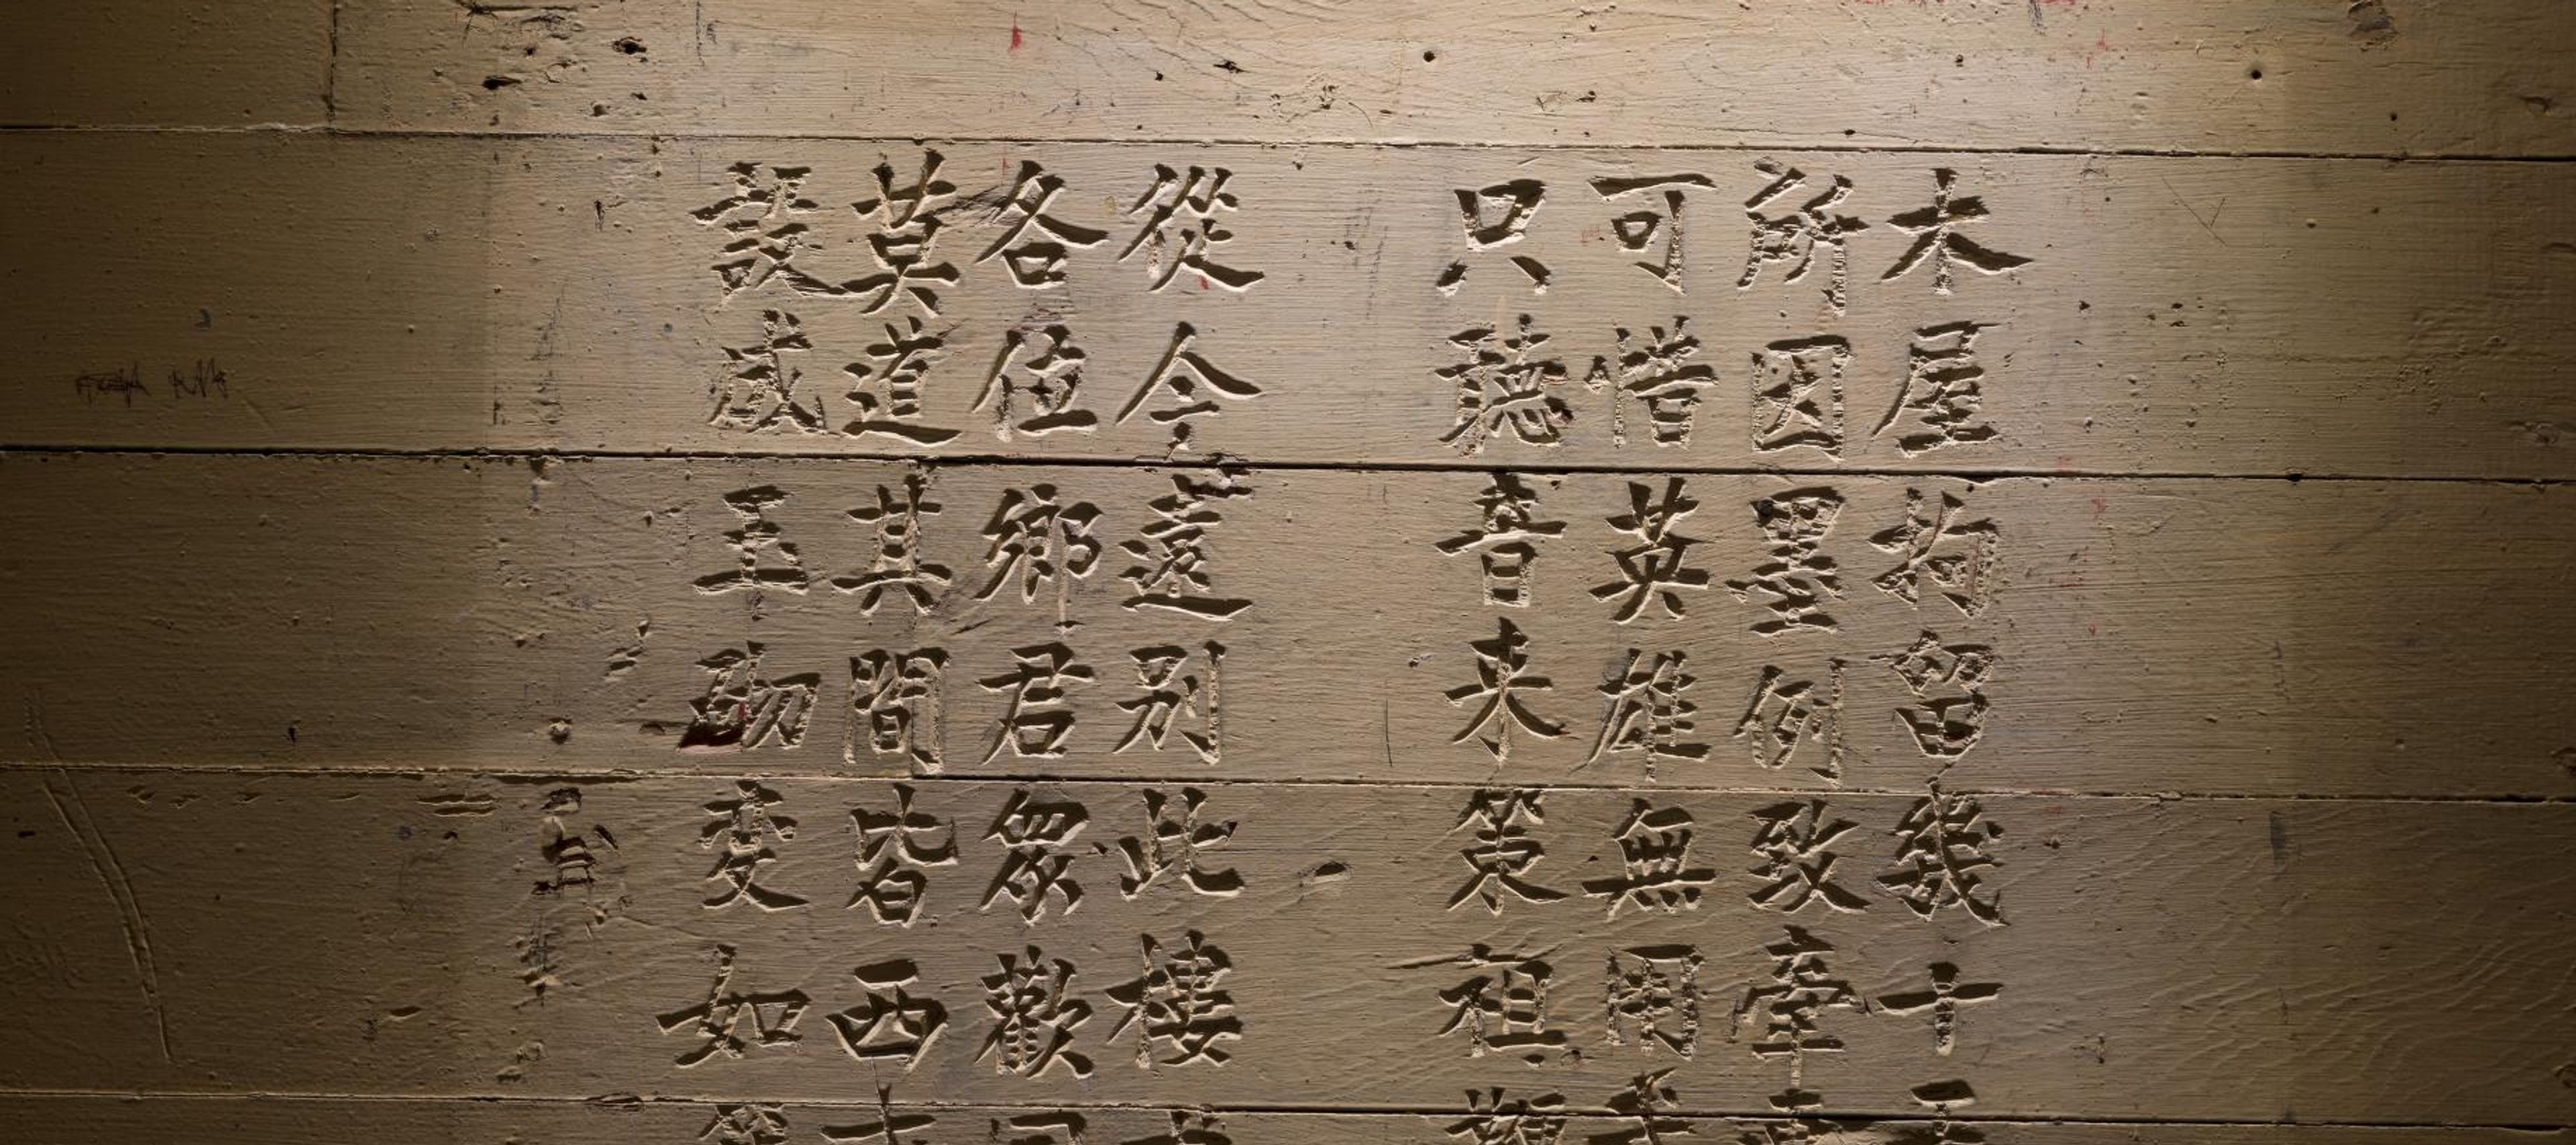 木屋拘留幾十
所因墨例致牽
可惜英雄無用
只聽音来策祖
從今遠别此樓
各位鄉君眾歡
莫道其間皆西
設成玉砌变如